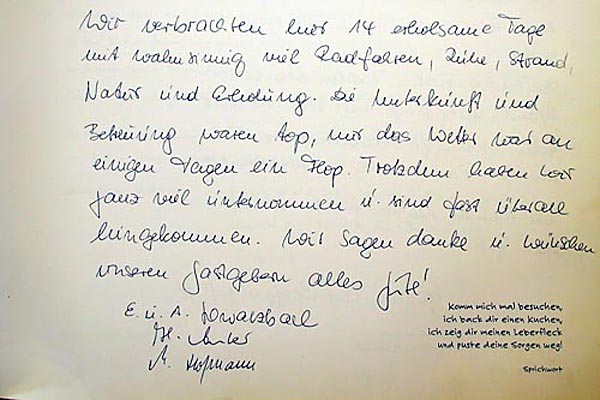 Wir verbrachten hier 14 erholsame Tage
mit wahnsinnig viel Radfahren, Ruhe, Strand,
Natur und Erholung. Die Unterkunft und
Betreuung waren top, nur das Wetter war an
einigen Tagen ein Flop. Trotzdem haben wir
ganz viel unternommen u. sind fast überall
hingekommen. Wir sagen danke u. wünschen
unseren Gastgebern alles Gute!
E. u. A. Schwarzbach
M. Hofmann
Komm mich mal besuchen,
ich back dir einen Kuchen,
ich zeig dir meinen Leberfleck
und puste deine Sorgen weg!
Sprichwort